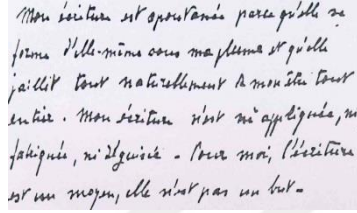 Mon écriture est spontanée parce qu'elle se
forme d'elle-même sous ma plume et qu'elle
jaillit tout naturellement de mon être tout
entier. Mon écriture n'est ni appliquée, ni
fatiguée, ni déguisée - Pour moi, l'écriture
est un moyen, elle n'est pas un but -